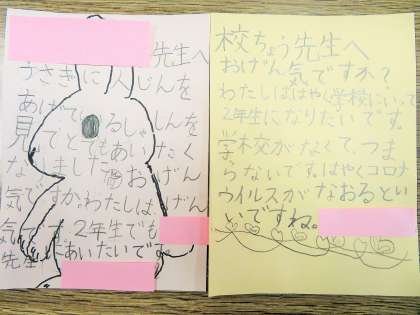 先生へ
うさぎに人じんを
あげて
見て とてもあいたく
なしました。 おげん
気ですか。わたしは、げん
気です。2年生でも
先生 にあいたいです。
木交ちょう先生へ
おげん気ですか？
わたしははやく学校にいって
2年生になりたいです。
学木交がなくて、つま
らないです。はやくコロナ
ウイルスがなおるとい
いですね。